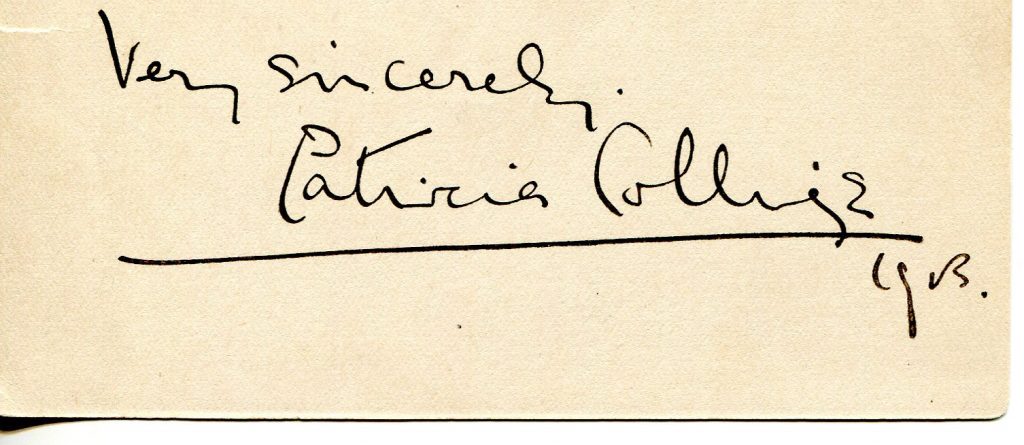 Very sincerely.
Patricia Collinge